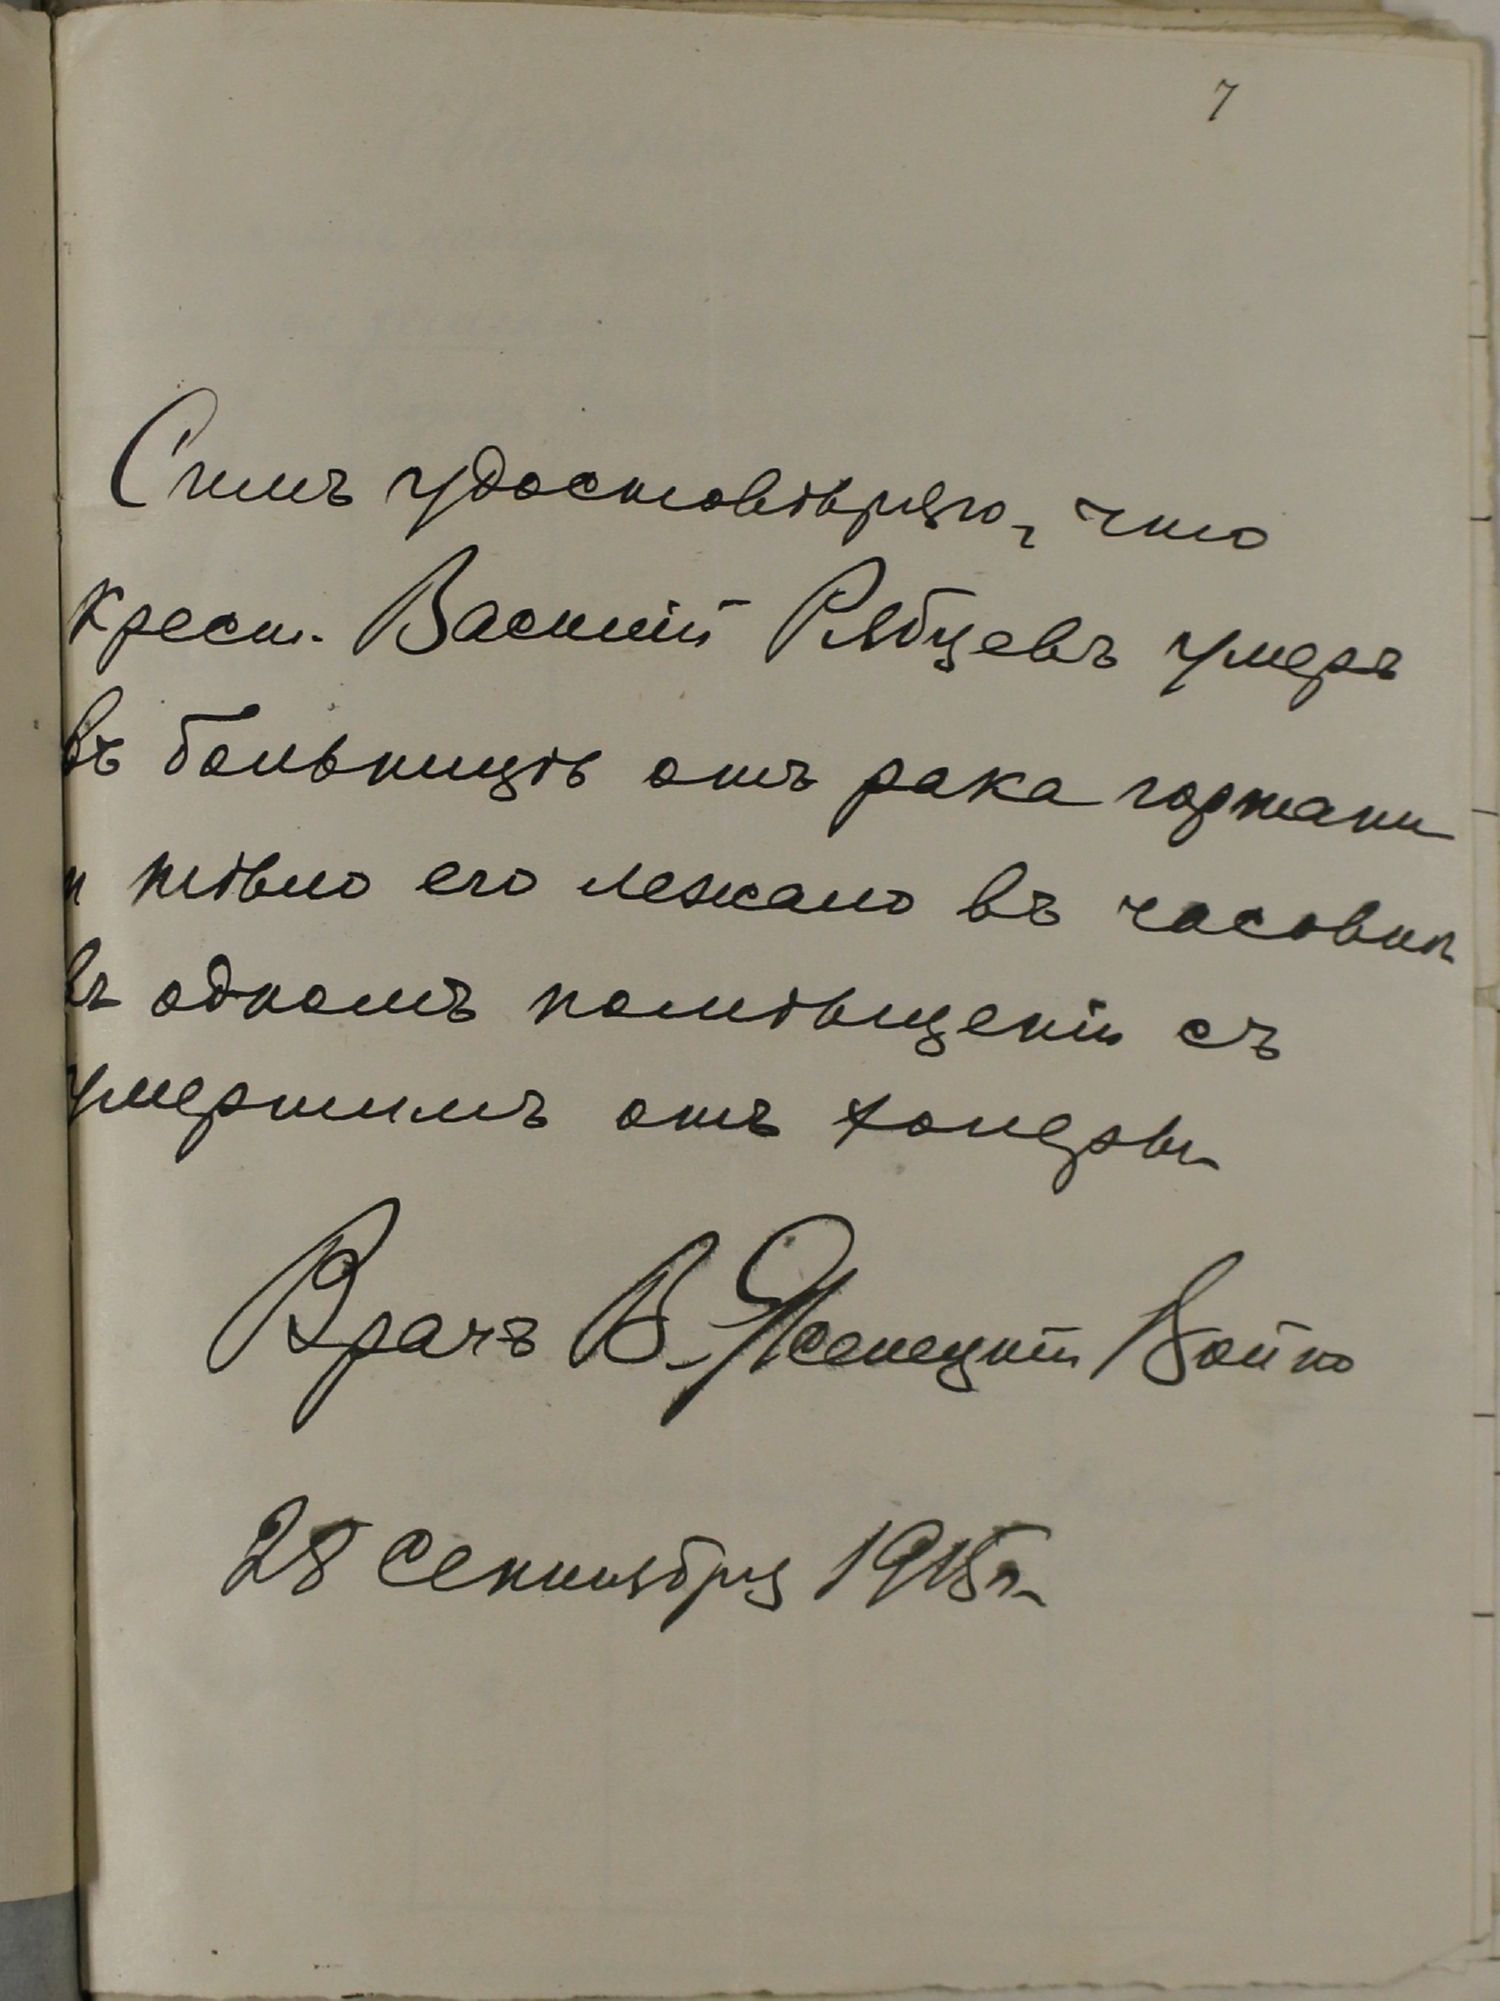 7
Симъ удостовѣряю, что
крест. Василій Рябцевъ умеръ
въ больницѣ отъ рака гортани
и тѣло его лежало въ часовнѣ
въ одномъ помѣщеніи съ
умершимъ отъ холеры
Врачъ В. Ясенецкій Войно
28 Сентября 1915 г.